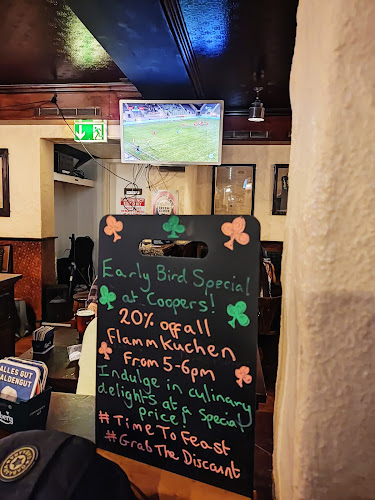 Early Bird Special
at Coopers!
20% off all
FlammKuchen
From 5-6pm
Indulge in culinary
delights at a Special
price!
#TimeToFeast
#Grab The Discount
ALLES GUT